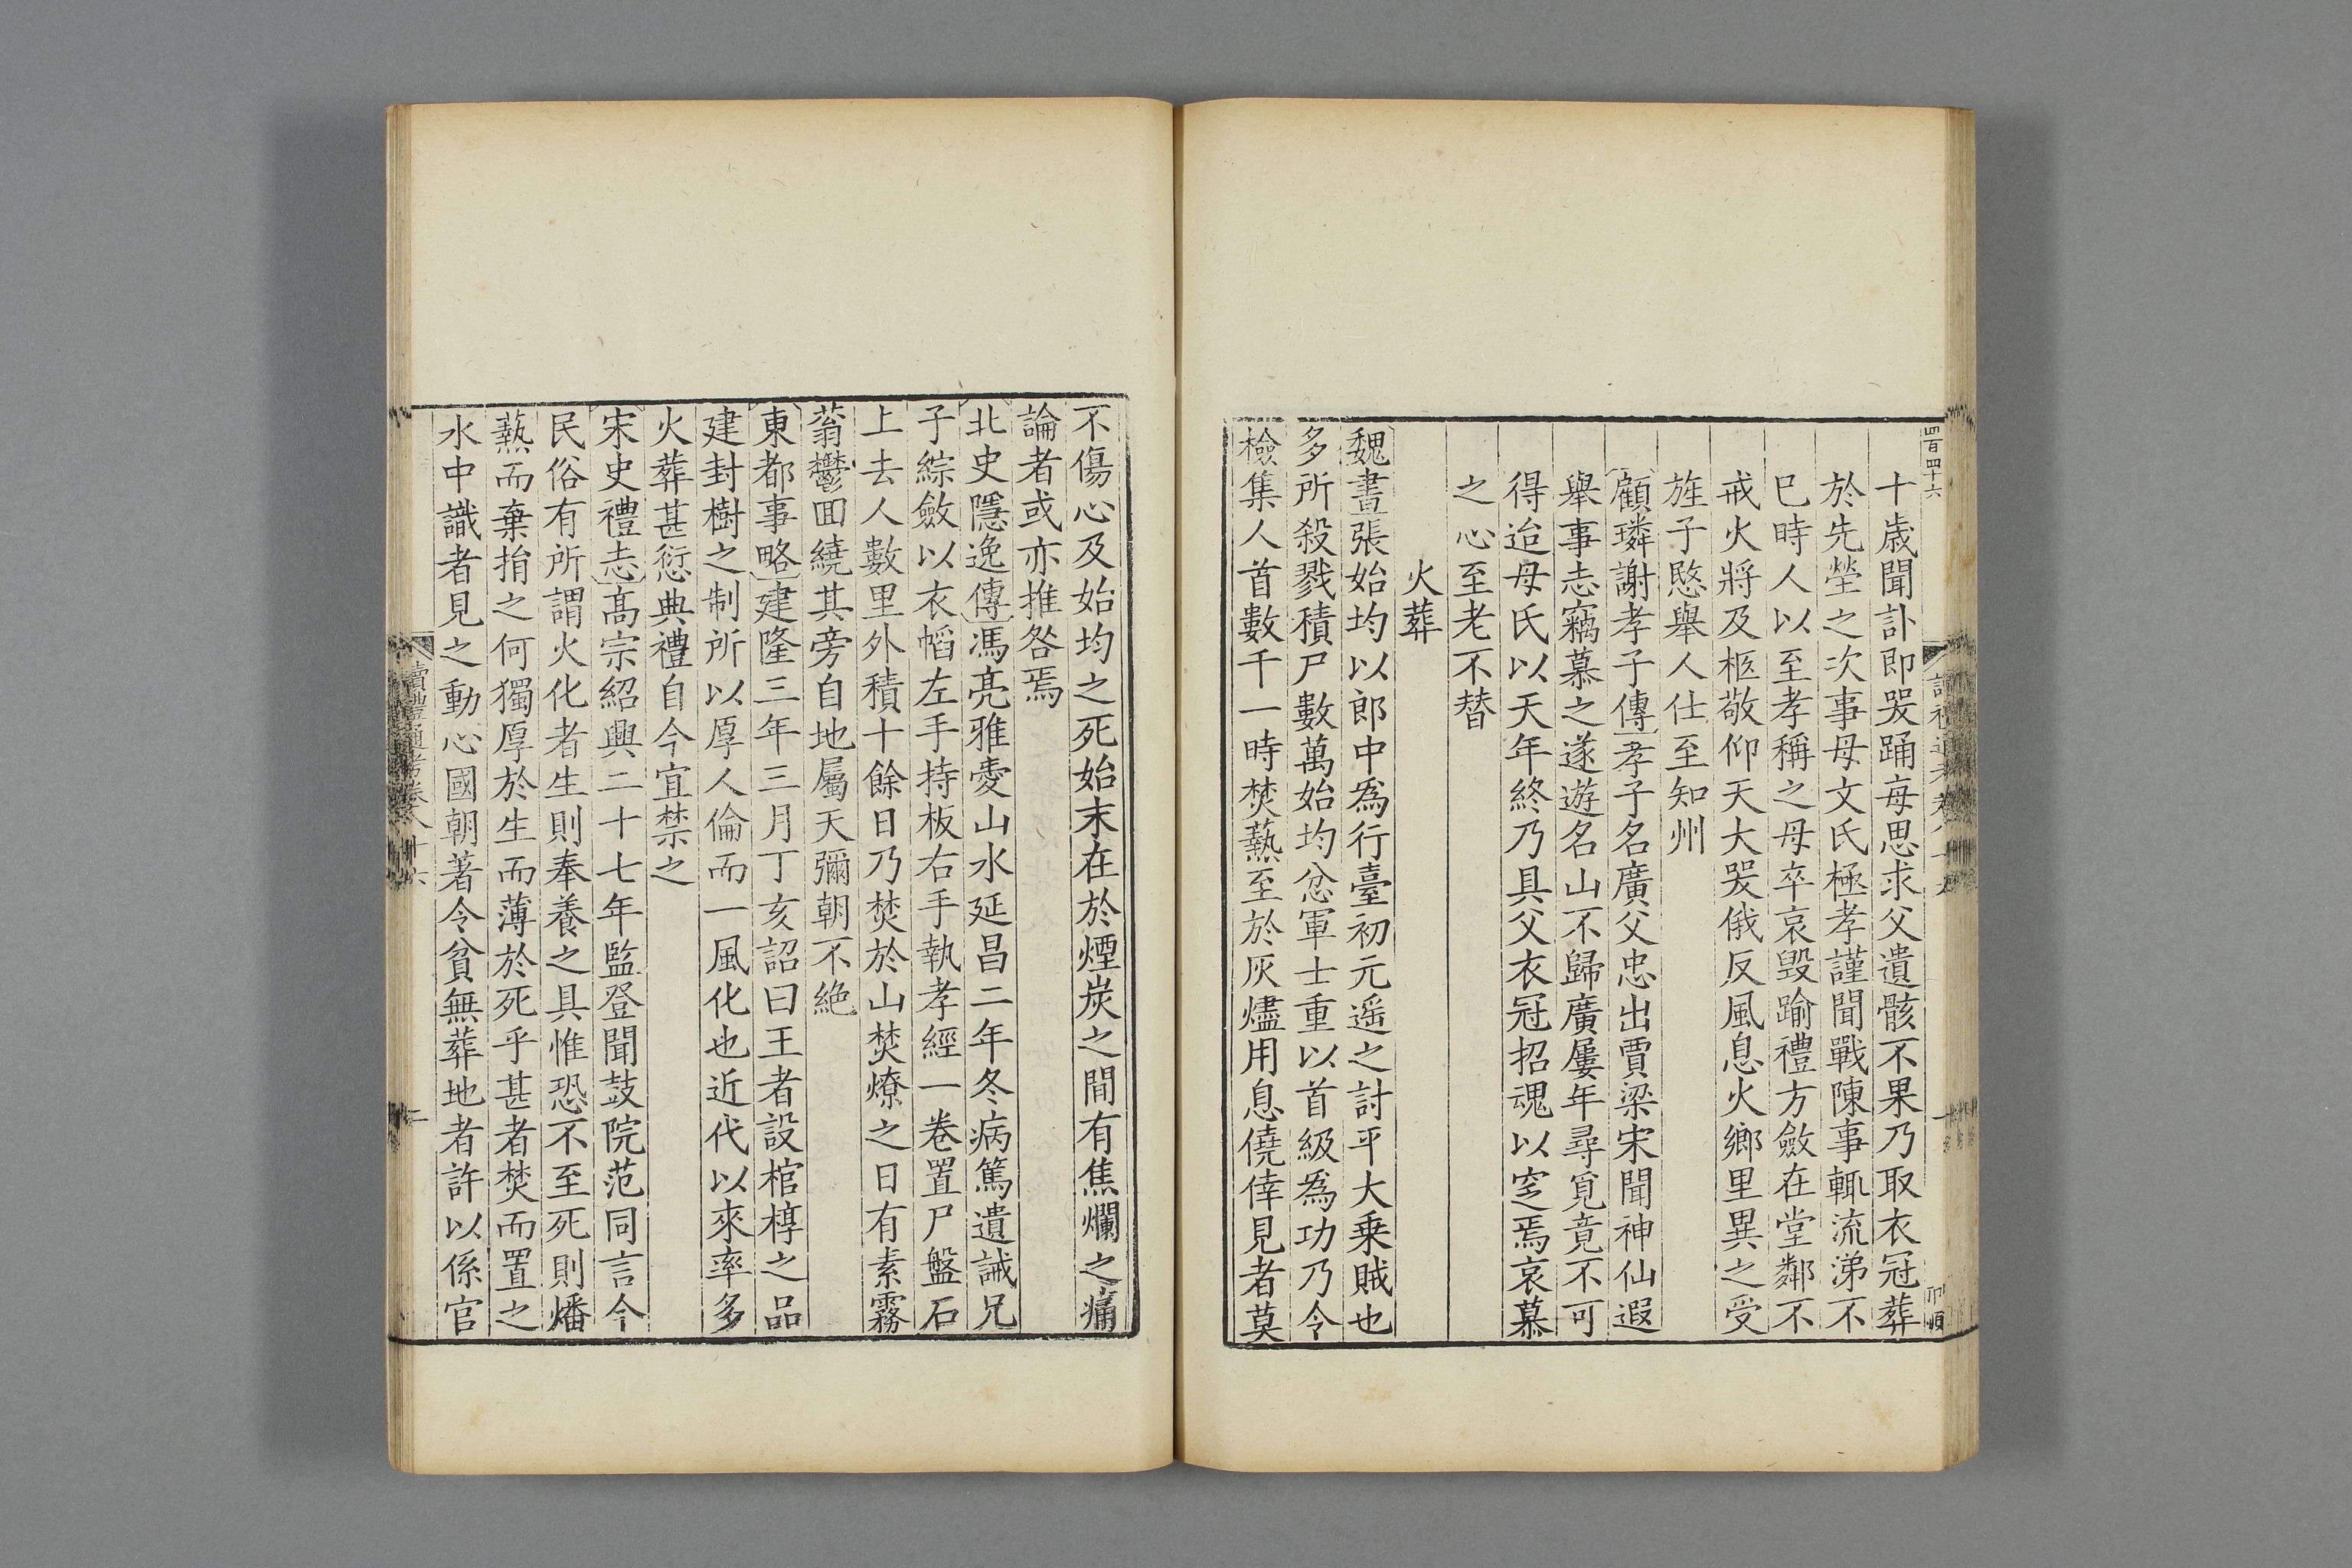 四百四十六
十歲聞訃即哭踊毋思求父遺骸不果乃取衣冠葬
於先塋之次事母文氏極孝謹聞戰陳事輒流涕不
巳時人以至孝稱之母卒哀毀踰禮方斂在堂鄰不
戒火將及柩敬仰天大哭俄反風息火鄉里異之受
旌子愍舉人仕至知州
顧璘謝孝子傳孝子名廣父忠出賈梁宋聞神仙遐
舉事志竊慕之遂遊名山不歸廣屢年尋覓竟不可
得迨母氏以天年終乃具父衣冠招魂以窆焉哀慕
之心至老不替
火葬
魏書張始均以郎中為行臺初元遥之討平大乗賊也
多所殺戮積尸數萬始均忿軍士重以首級為功乃令
檢集人首數千一時焚爇至於灰燼用息僥倖見者莫
不傷心及始均之死始末在於煙炭之間有焦爛之痛
論者或亦推咎焉
北史隱逸傳馮亮雅愛山水延昌二年冬病篤遺誡兄
子綜斂以衣幍左手持板右手執孝經一卷置尸盤石
上去人數里外積十餘日乃焚於山焚燎之日有素霧
蓊鬱回繞其旁自地屬天彌朝不絶
東都事略建隆三年三月丁亥詔曰王者設棺椁之品
建封樹之制所以厚人倫而一風化也近代以來率多
火葬甚愆典禮自今宜禁之
宋史禮志高宗紹興二十七年監登聞鼓院范同言今
民俗有所謂火化者生則奉養之具惟恐不至死則燔
爇而棄捐之何獨厚於生而薄於死乎甚者焚而置之
水中識者見之動心國朝著令貧無葬地者許以係官
讀禮通考卷八十六
二